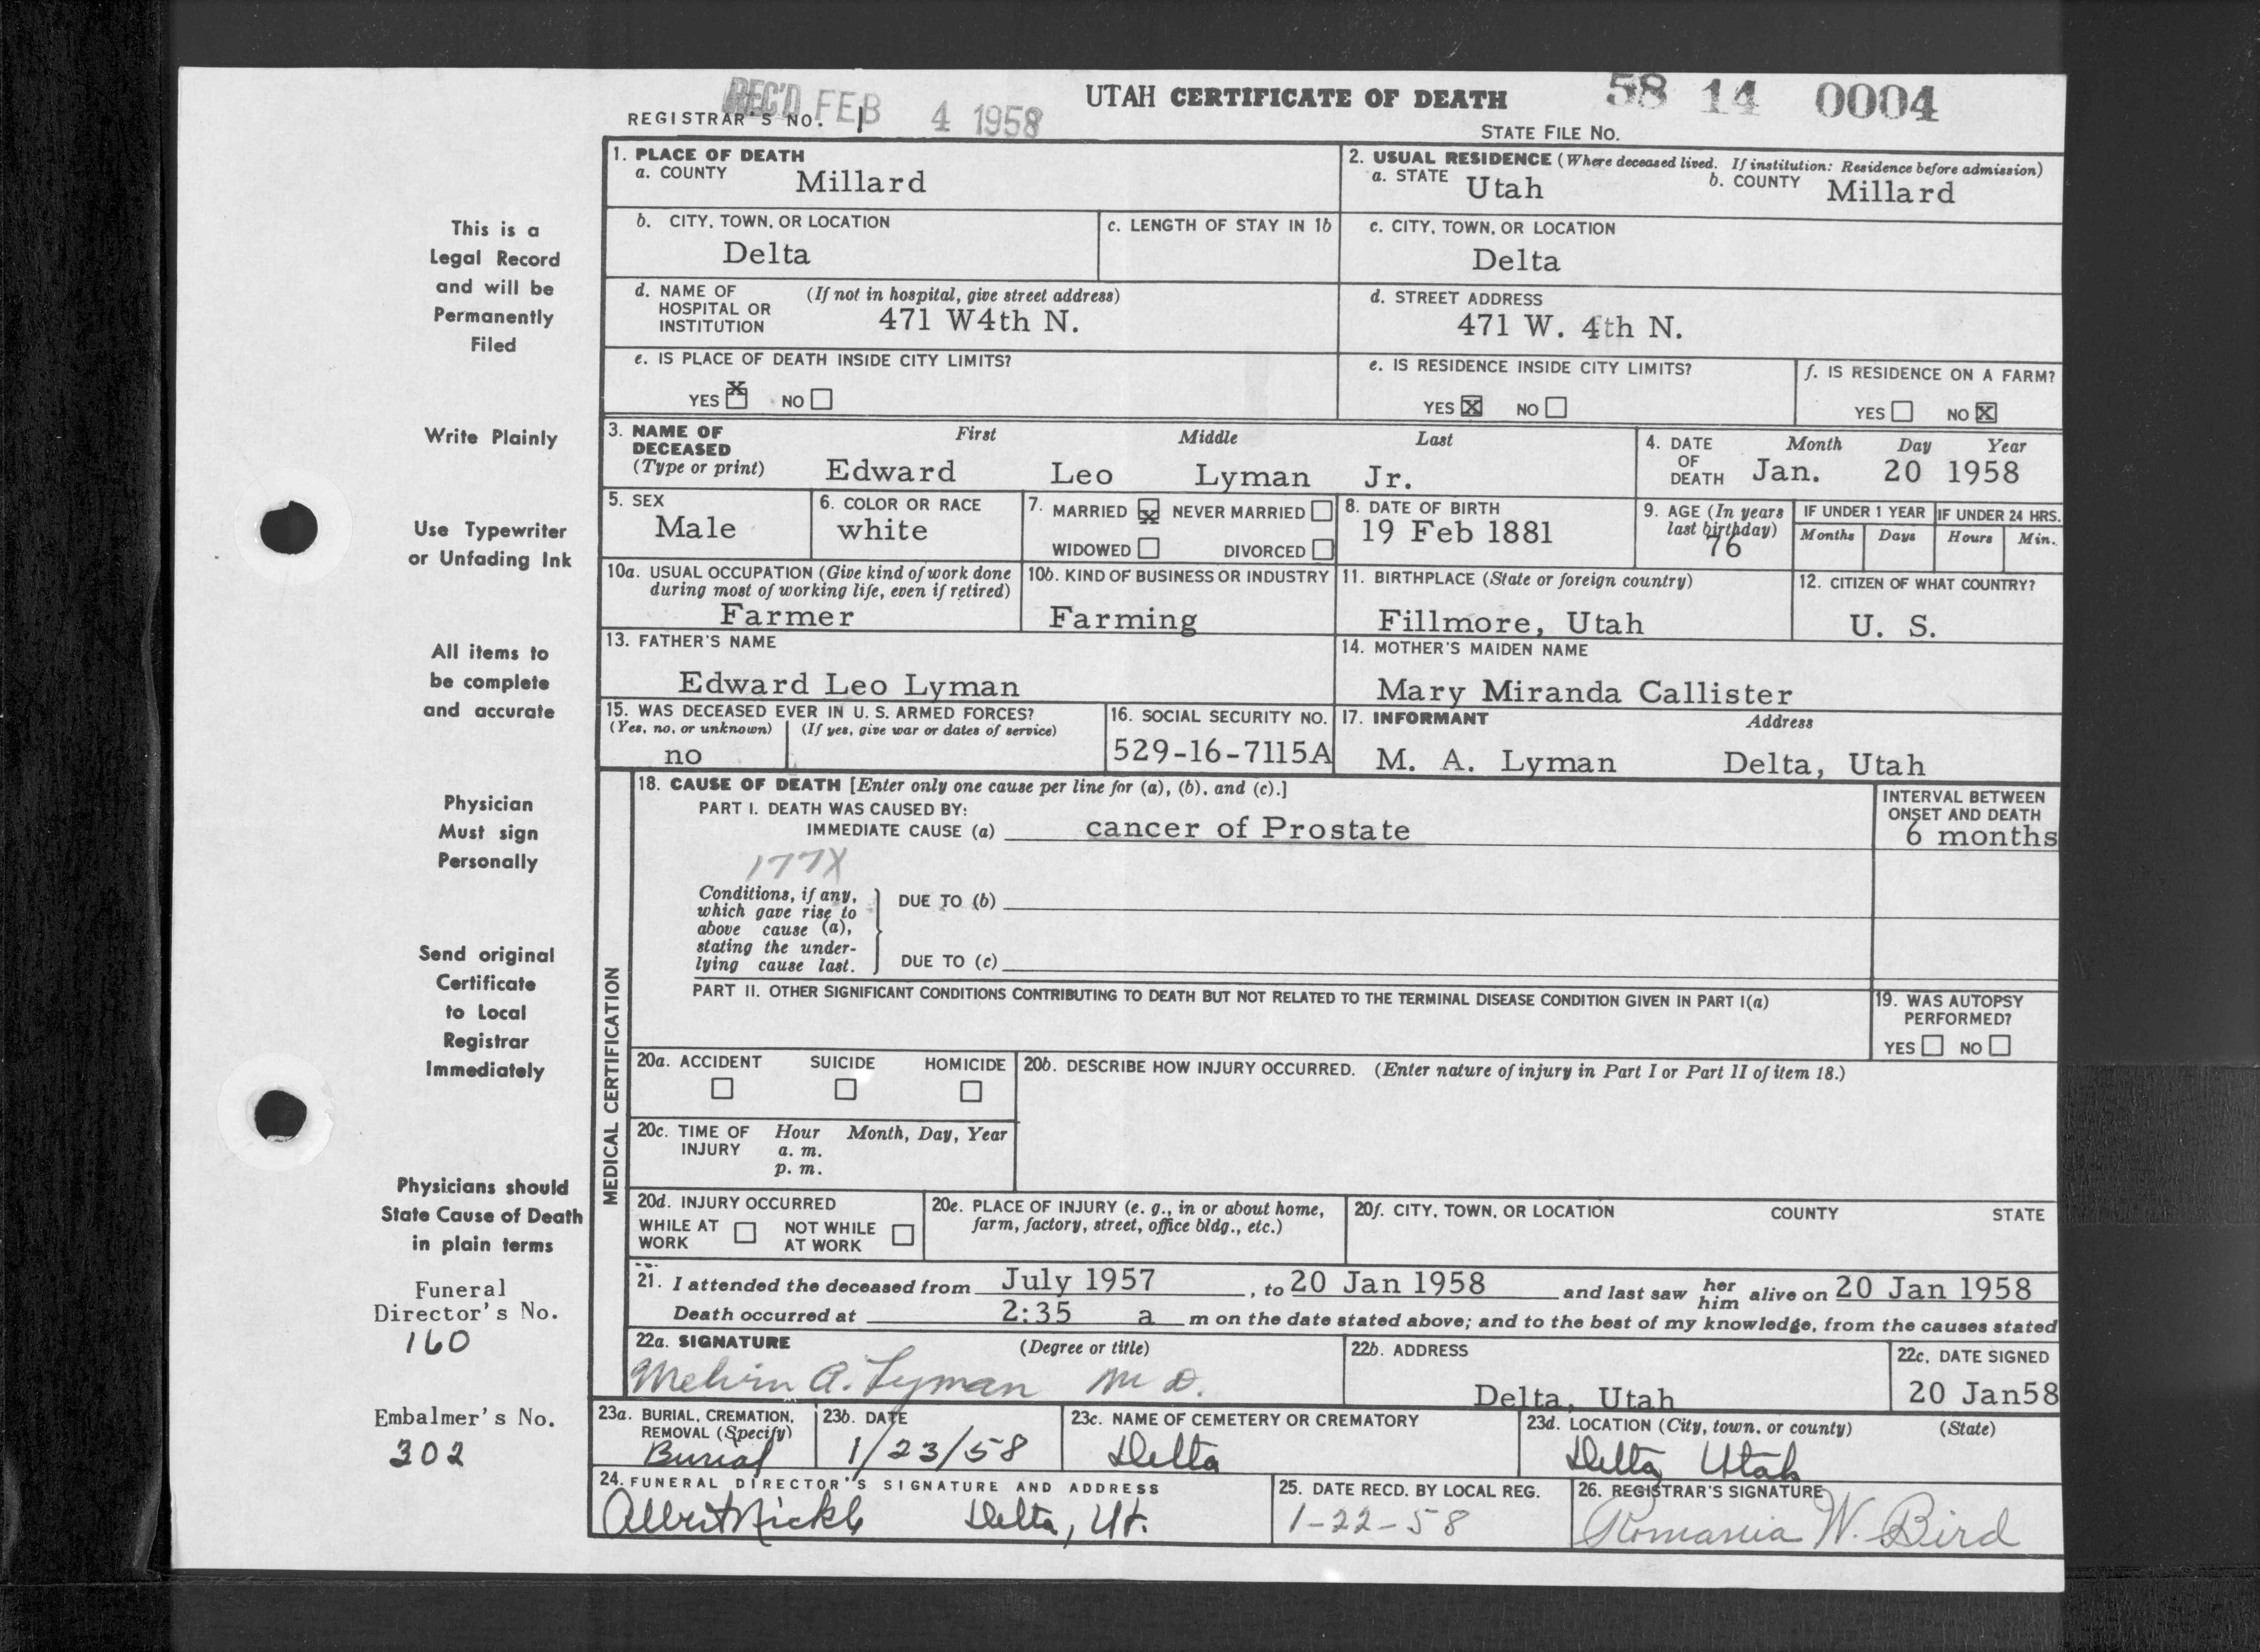 REC'D FEB 4 1958
UTAH CERTIFICATE OF DEATH
58 14 0004
REGISTRAR'S NO. 1
STATE FILE NO.
1. PLACE OF DEATH
a. COUNTY Millard
2. USUAL RESIDENCE (Where deceased lived. If institution: Residence before admission)
a. STATE Utah b. COUNTY Millard
b. CITY, TOWN, OR LOCATION
Delta
c. LENGTH OF STAY IN 1b
c. CITY, TOWN, OR LOCATION
Delta
d. NAME OF HOSPITAL OR INSTITUTION (If not in hospital, give street address)
471 W4th N.
d. STREET ADDRESS
471 W. 4th N.
e. IS PLACE OF DEATH INSIDE CITY LIMITS?
YES X NO
e. IS RESIDENCE INSIDE CITY LIMITS?
YES X NO
f. IS RESIDENCE ON A FARM?
YES NO X
3. NAME OF DECEASED (Type or print) First Middle Last
Edward Leo Lyman Jr.
4. DATE OF DEATH Month Day Year
Jan. 20 1958
5. SEX
Male
6. COLOR OR RACE
white
7. MARRIED X NEVER MARRIED
WIDOWED DIVORCED
8. DATE OF BIRTH
19 Feb 1881
9. AGE (In years last birthday)
76
IF UNDER 1 YEAR
Months Days
IF UNDER 24 HRS.
Hours Min.
10a. USUAL OCCUPATION (Give kind of work done during most of working life, even if retired)
Farmer
10b. KIND OF BUSINESS OR INDUSTRY
Farming
11. BIRTHPLACE (State or foreign country)
Fillmore, Utah
12. CITIZEN OF WHAT COUNTRY?
U. S.
13. FATHER'S NAME
Edward Leo Lyman
14. MOTHER'S MAIDEN NAME
Mary Miranda Callister
15. WAS DECEASED EVER IN U. S. ARMED FORCES?
(Yes, no, or unknown) (If yes, give war or dates of service)
no
16. SOCIAL SECURITY NO.
529-16-7115A
17. INFORMANT Address
M. A. Lyman Delta, Utah
MEDICAL CERTIFICATION
18. CAUSE OF DEATH [Enter only one cause per line for (a), (b), and (c).]
PART I. DEATH WAS CAUSED BY:
IMMEDIATE CAUSE (a) cancer of Prostate
INTERVAL BETWEEN ONSET AND DEATH
6 months
177X
Conditions, if any, which gave rise to above cause (a), stating the underlying cause last.
DUE TO (b)
DUE TO (c)
PART II. OTHER SIGNIFICANT CONDITIONS CONTRIBUTING TO DEATH BUT NOT RELATED TO THE TERMINAL DISEASE CONDITION GIVEN IN PART I(a)
19. WAS AUTOPSY PERFORMED?
YES NO
20a. ACCIDENT SUICIDE HOMICIDE
20b. DESCRIBE HOW INJURY OCCURRED. (Enter nature of injury in Part I or Part II of item 18.)
20c. TIME OF INJURY Hour Month, Day, Year
a. m.
p. m.
20d. INJURY OCCURRED
WHILE AT WORK NOT WHILE AT WORK
20e. PLACE OF INJURY (e. g., in or about home, farm, factory, street, office bldg., etc.)
20f. CITY, TOWN, OR LOCATION COUNTY STATE
21. I attended the deceased from July 1957, to 20 Jan 1958 and last saw her him alive on 20 Jan 1958
Death occurred at 2:35 a m on the date stated above; and to the best of my knowledge, from the causes stated
22a. SIGNATURE (Degree or title)
Melvin A. Lyman M D.
22b. ADDRESS
Delta, Utah
22c. DATE SIGNED
20 Jan58
23a. BURIAL, CREMATION, REMOVAL (Specify)
Burial
23b. DATE
1/23/58
23c. NAME OF CEMETERY OR CREMATORY
Delta
23d. LOCATION (City, town, or county) (State)
Delta, Utah
24. FUNERAL DIRECTOR'S SIGNATURE AND ADDRESS
Albert Nickle Delta, Ut.
25. DATE RECD. BY LOCAL REG.
1-22-58
26. REGISTRAR'S SIGNATURE
Romania W. Bird
This is a
Legal Record
and will be
Permanently
Filed
Write Plainly
Use Typewriter
or Unfading Ink
All items to
be complete
and accurate
Physician
Must sign
Personally
Send original
Certificate
to Local
Registrar
Immediately
Physicians should
State Cause of Death
in plain terms
Funeral
Director's No.
160
Embalmer's No.
302